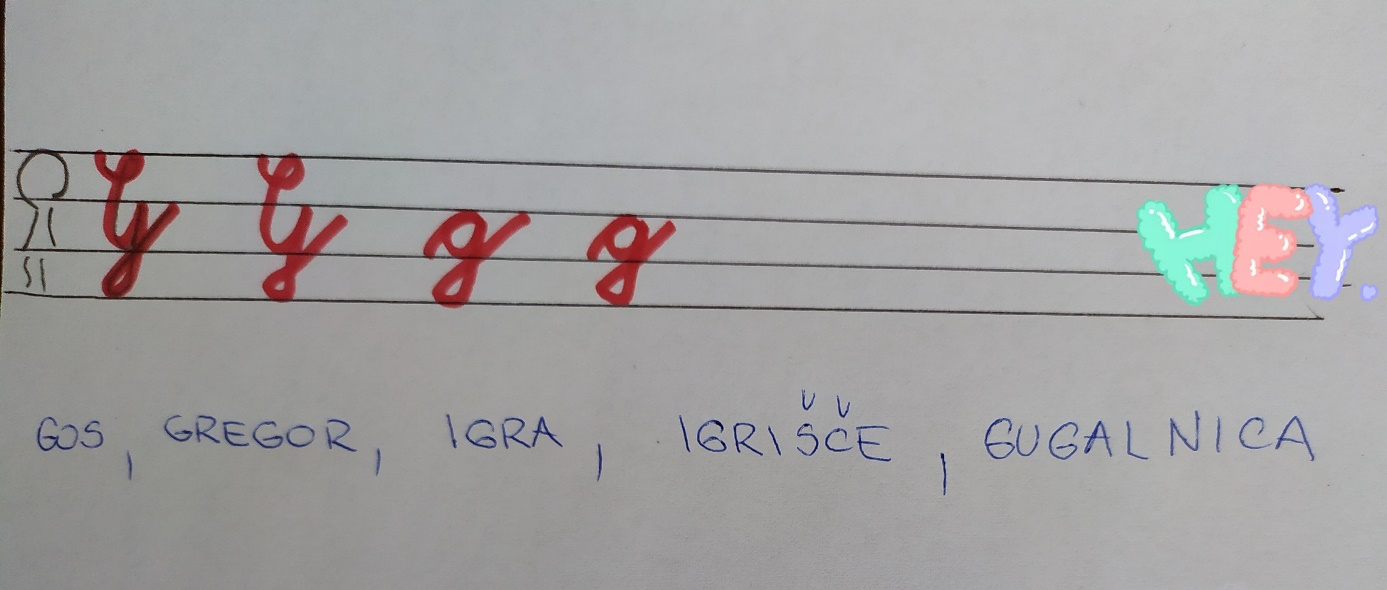 G G g g HEY.
GOS, GREGOR, IGRA, IGRIŠČE, GUGALNICA